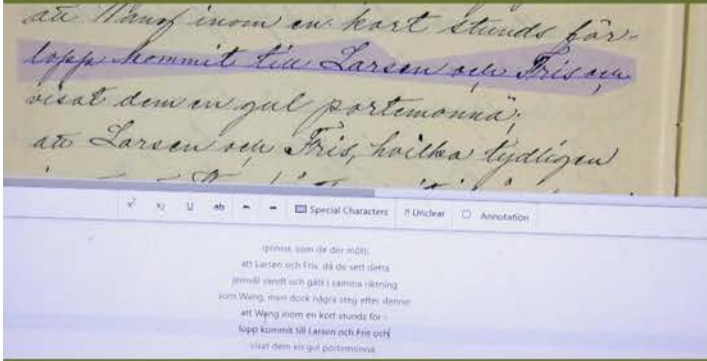 att Wang inom en kort stunds för-
lopp kommit till Larsen och Fris och
visat dem en gul portemonnä;
att Larsen och Fris, hvilka tydligen
x² x₂ U ab Special Characters ? Unclear Annotation
qvinna, som de der mött,
att Larsen och Fris, då de sett detta
jemväl vändt och gått i samma riktning
som Wang, men dock några steg efter denne
att Wang inom en kort stunds för -
lopp kommit till Larsen och Fris och
visat dem en gul portemonna